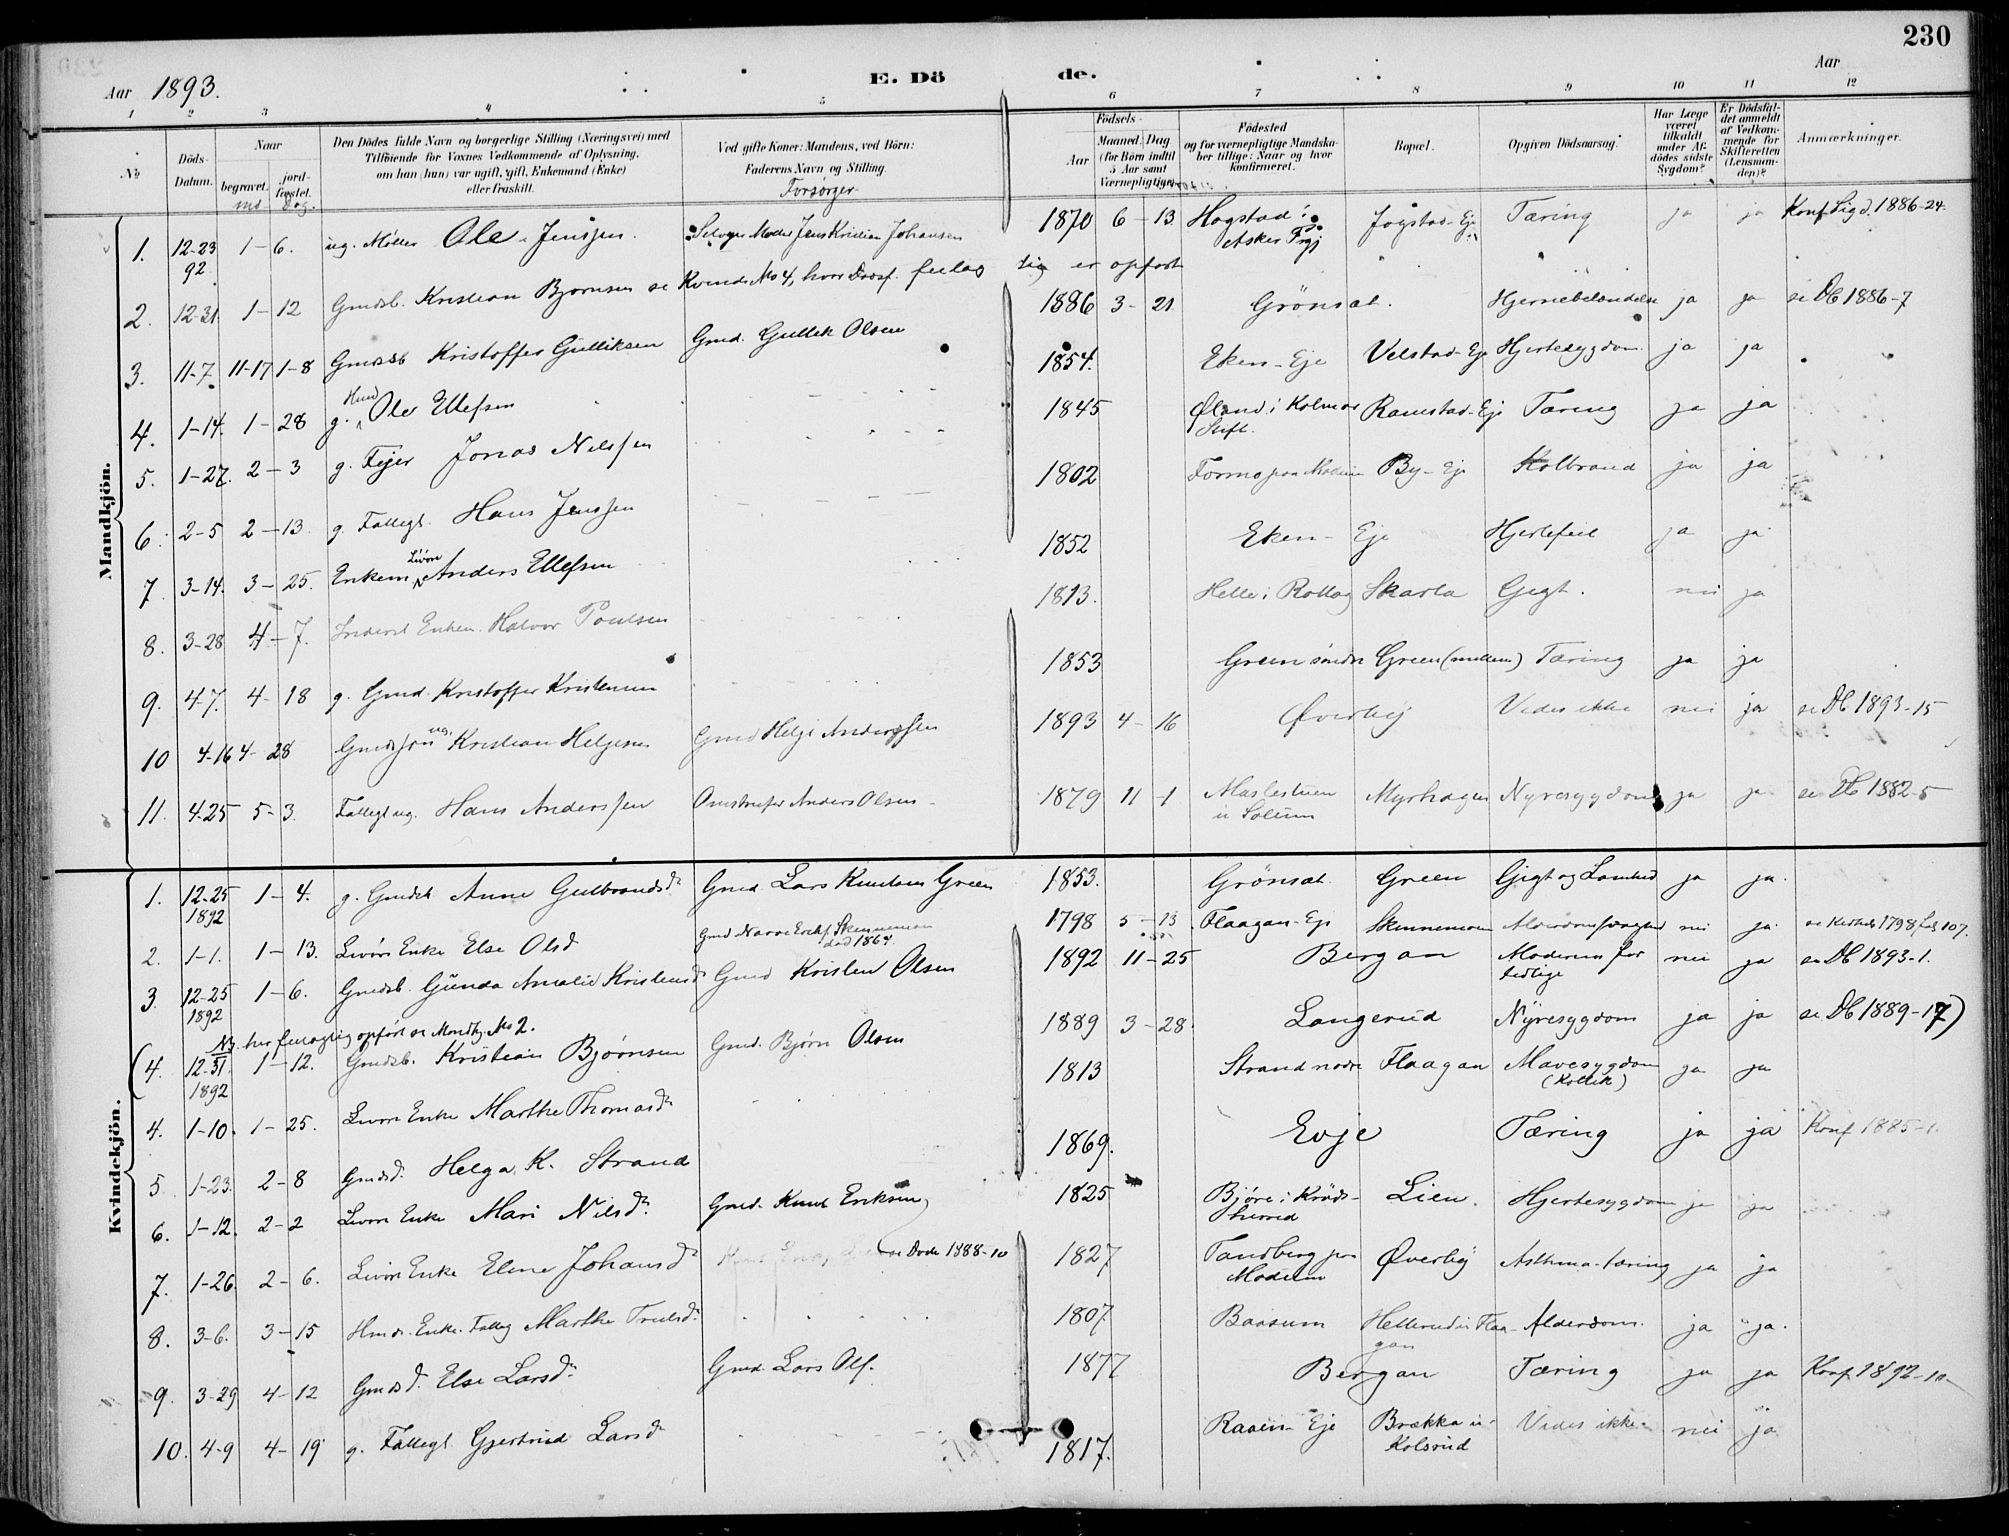 230
Aar 1893.
E. Dö de.
Aar
1 2 3 4 5 6 7 8 9 10 11 12
No
Döds-Datum.
Naar
begravet.
jord-fæstet.
Den Dödes fulde Navn og borgerlige Stilling (Næringsvei) med
Tilföiende for Voxnes Vedkommende af Oplysning,
om han (hun) var ugift, gift, Enkemand (Enke)
eller fraskilt.
Ved gifte Koner: Mandens, ved Börn:
Faderens Navn og Stilling.
Forsörger
Födsels-
Aar
Maaned. Dag
(for Börn indtil
5 Aar samt
Værnepligtige)
Födested
og for værnepligtige Mandska-
ber tillige: Naar og hvor
konfirmeret.
Bopæl.
Opgiven Dödsaarsag.
Har Læge
været
tilkaldt
under Af-
dödes sidste
Sygdom?
Er Dödsfal-
det anmeldt
af Vedkom-
mende for
Skifteretten
(Lensman-
den)?
Anmærkninger.
Mandkjön.
1. 12-23 92 1-6. ug. Møller Ole Jenssen. Jens Kristian Johansen 1870 6-13 Hogstad i Asker Tæring ja ja Konf. 1886-24.
2. 12-31 1-12 Gmdsb. Kristian Bjørnsen se Kvindk No 4, hvor feilag tig er opført 1886 3-21 Grönsat. ja ja se Db 1886-7
3. 11-7. 11-17 1-8 Gmdsb Kristoffer Gulliksen Gmd. Gullik Olsen 1854. Eken-Eje Velstad-Eje Hjertesygdom ja ja
4. 1-14. 1-28 g. Hmd Ole Ellefsen 1845 Øland i Kolmar Stift. Ramstad-Eje Tæring ja ja
5. 1-27. 2-3 g. Fejer Jonas Nilssen 1802 paa Modum By-Eje Kolbrand ja ja
6. 2-5 2-13 g. Fattigl. Hans Jenssen 1852 Eken-Eje Hjertefeil ja ja
7. 3-14. 3-25. Enkem Livørn Anders Ellefsen 1813. Helle i Rollag Skarta Gigt. nei ja
8. 3-28 4-7. Inderst Enkem. Halvor Poulsen 1853 Green søndre Green (mellem) Tæring ja ja
9. 4-7. 4-18 g. Gmd. Kristoffer Kristensen 1893 4-16 Øverby Vides ikke nei ja se Db 1893-15
10 4-16 4-28 Gmdssøn ug. Kristian Helgesen Gmd Helge Anderssen 1879 11-1 i Solum Myrhagen Nyresygdom ja ja se Db 1882-5
11. 4-25 5-3. Fattigl ug. Hans Anderssen Anders Olsen
Kvindekjön.
1. 12-25 1892 1-4. g. Gmdsk Anne Gulbrandsdr Gmd Lars Knutsen Green 1853. Grönsat Green Gigt og Lamhed ja ja.
2. 1-1. 1-13. Livørn Enke Else Olsd Gmd Skinnemoen död 1864. 1798 5-13 Flaagan-Eje Skinnemoen nei ja. 1798, 107.
3. 12-25 1892 1-6. Gmdsb. Gunda Amalie Kristensdr Gmd Kristen Olsen 1892 11-25 Bergan Moderens for tidlige nei ja se Db 1893-1.
NB. her feilagtig opført se Mandkj. No 2.
(4. 12-31. 1892 1-12. Gmdsb. Kristian Bjørnsen Gmd. Bjørn Olsen 1889 3-28. Langerud Nyresygdom ja ja se Db 1889-17)
4. 1-10. 1-25. Livørn Enke Marthe Thomasdr 1813 Strand nordre Flaagan Mavesygdom (Kolik) ja ja
5 1-23. 2-8 Gmdsd. Helga K. Strand 1869. Evje Tæring ja ja Konf 1885-1.
6. 1-12. 2-2 Livørn Enke Mari Nilsdr. Gmd. Knud Eriksen 1825 Bjøre i Kröds-herred Lien. Hjertesygdom ja ja
7. 1-26. 2-6. Livørn Enke Eline Johansdr se Døde 1888-10 1827 Tandberg paa Modum Øverby Asthma-tæring ja ja
8. 3-6. 3-15 Hmds. Enke. Fattig Marthe Trulsdr 1807. Baasum Hellerud u Flaa-gan Alderdom. ja ja.
9. 3-29 4-12 Gmdsd. Else Larsdr. Gmd. Lars Ols. 1877 Bergan Tæring ja ja Konf. 1892-10
10. 4-9 4-19 g. Fattigl. Gjertrud Larsdr 1817. Raaen-Eje Brækka u Kolsrud Vides ikke nei ja